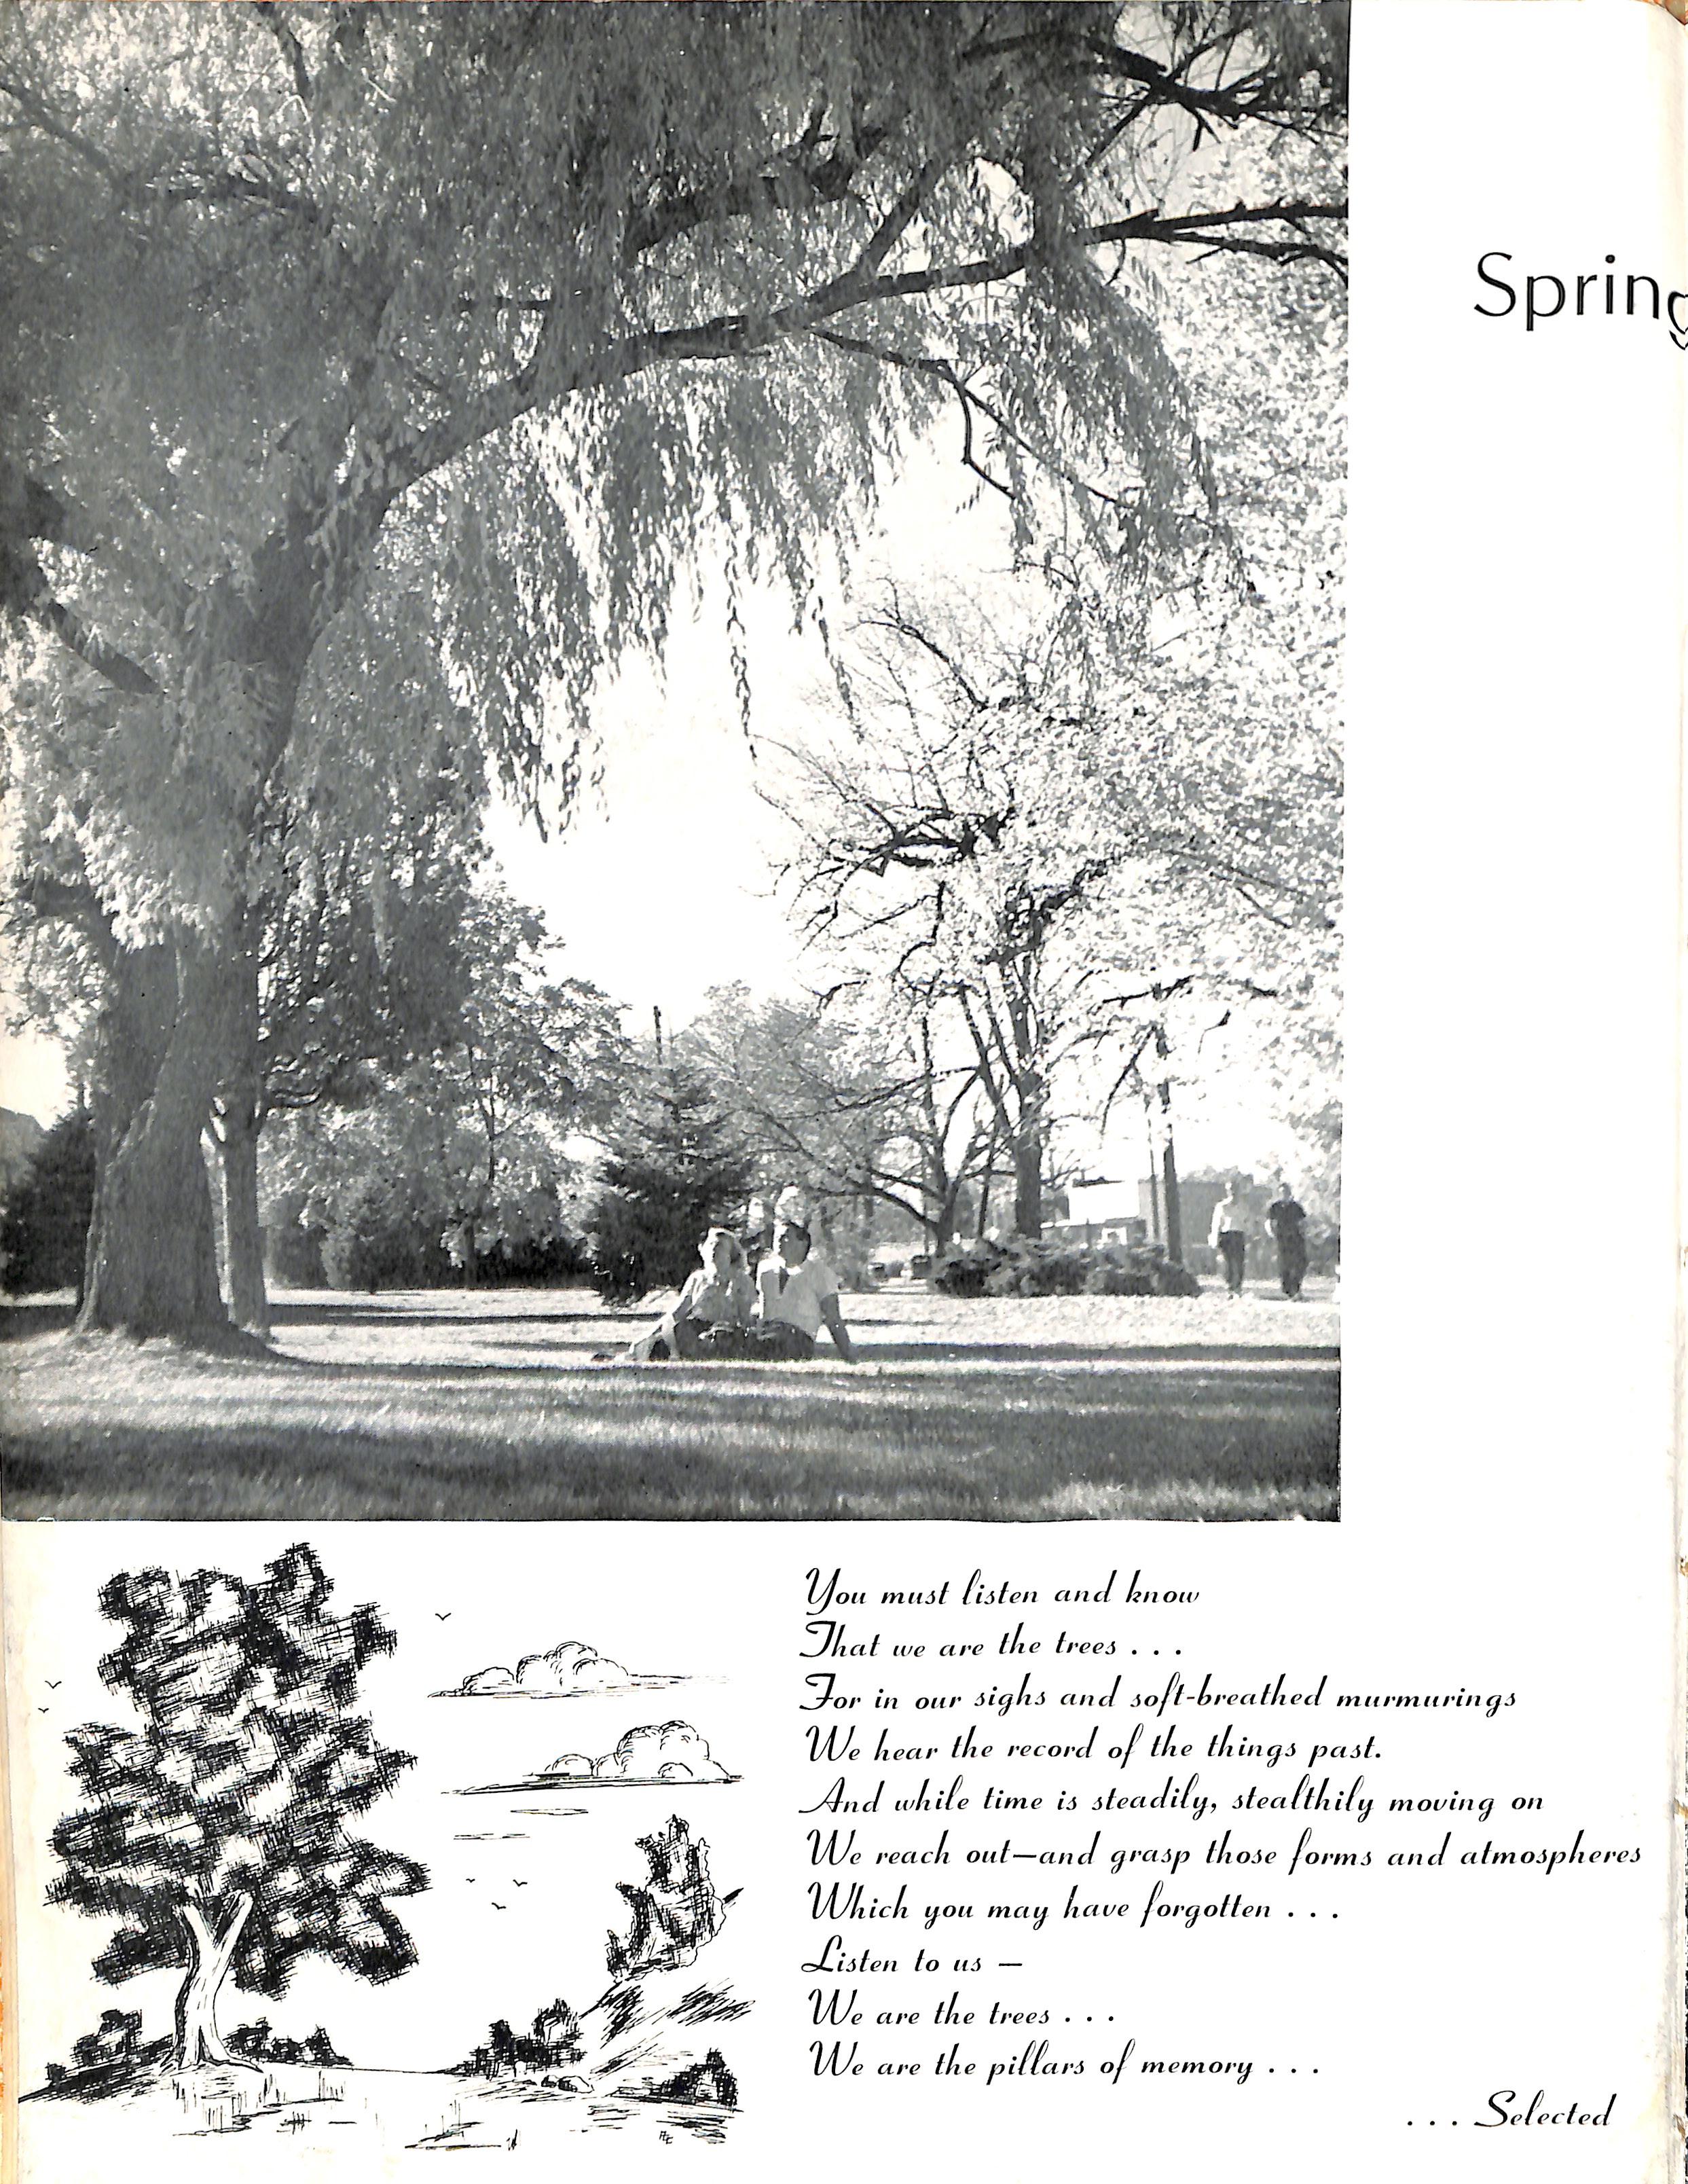 Spring
You must listen and know
That we are the trees . . .
For in our sighs and soft-breathed murmurings
We hear the record of the things past.
And while time is steadily, stealthily moving on
We reach out—and grasp those forms and atmospheres
Which you may have forgotten . . .
Listen to us —
We are the trees . . .
We are the pillars of memory . . .
. . . Selected